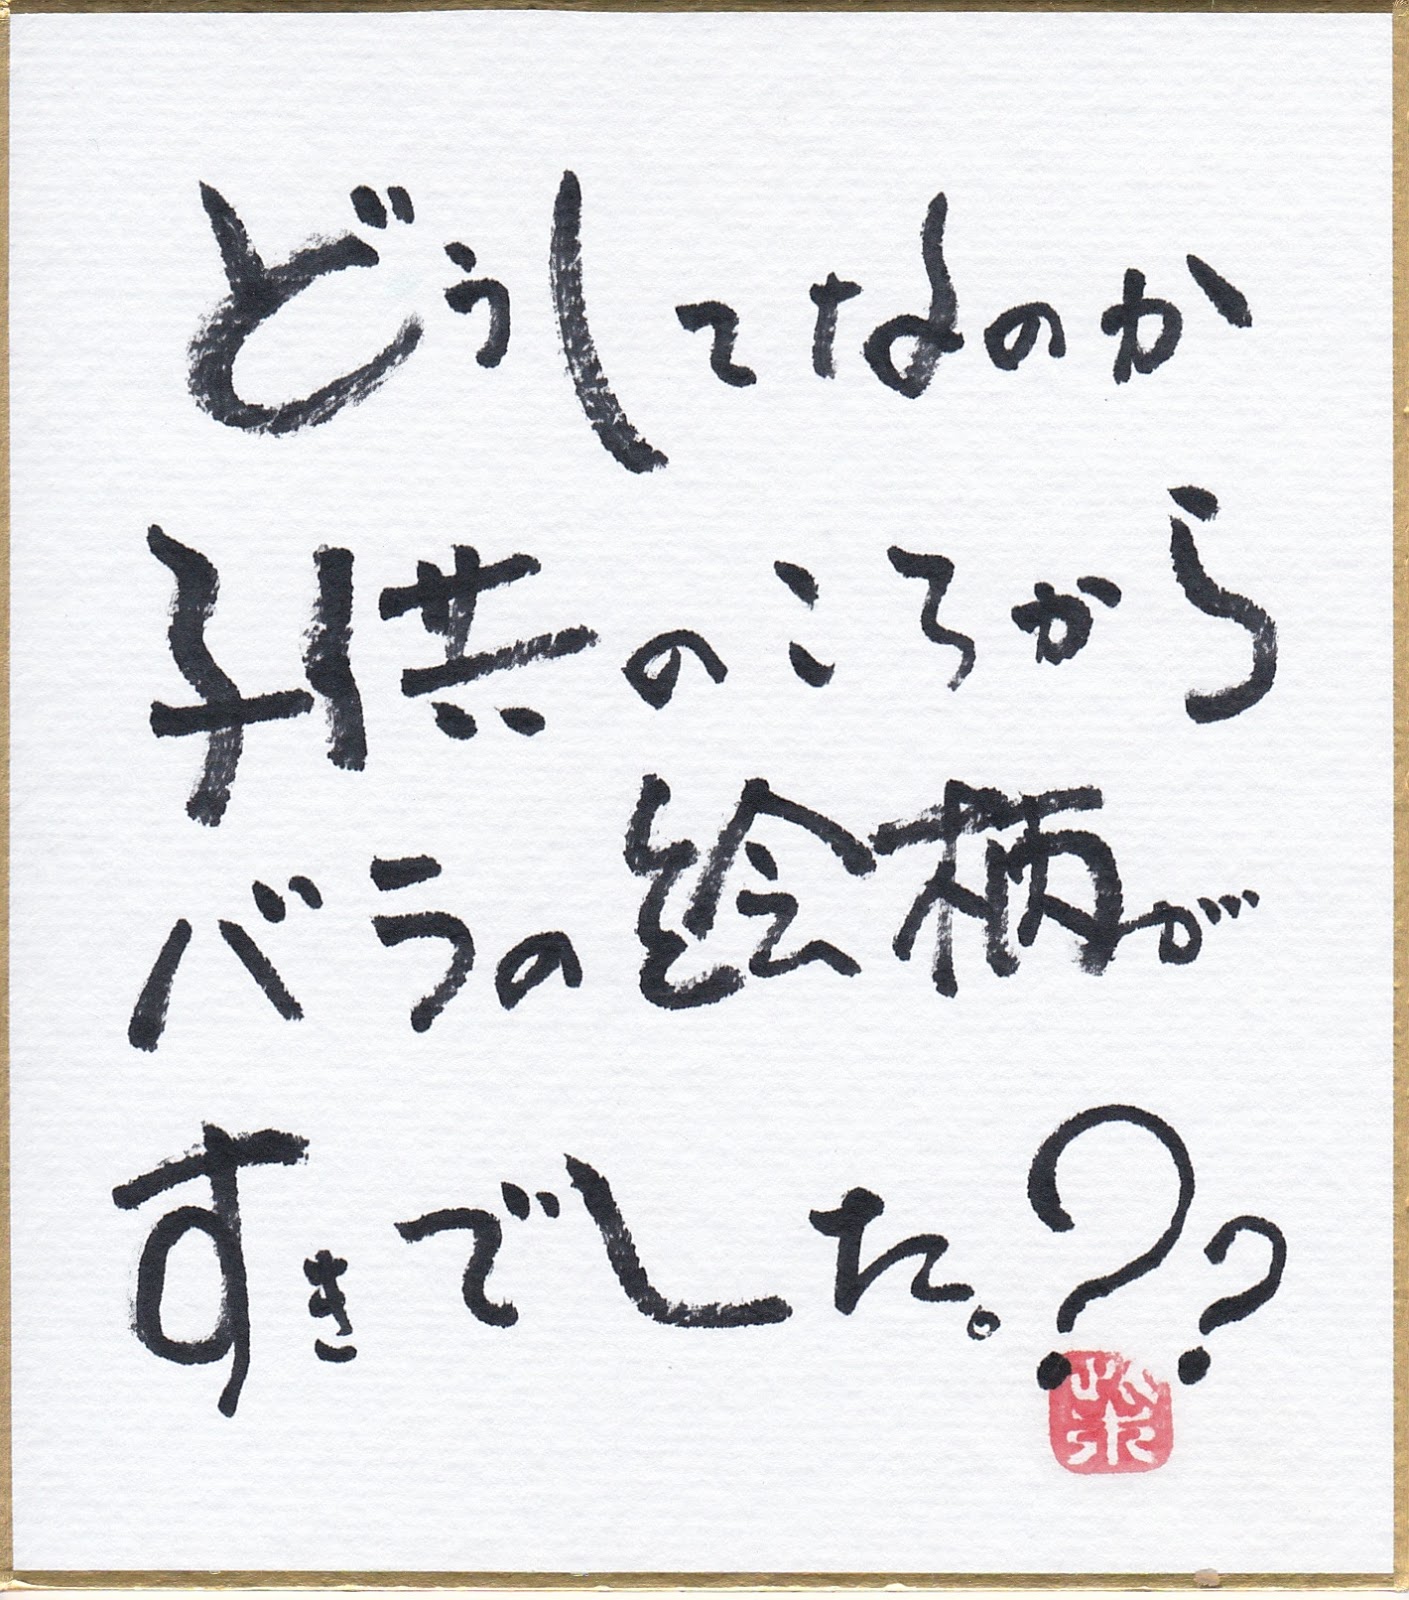 どうしてなのか
子供のころから
バラの絵柄が
すきでした。??